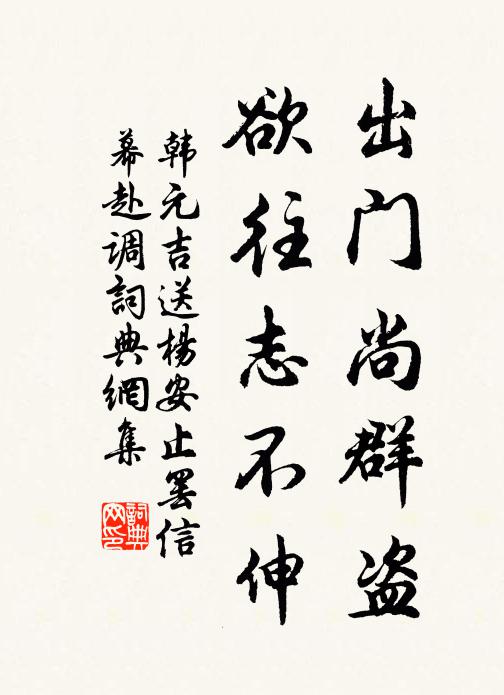 出门尚群盗
欲往志不伸
韩元吉送杨安止罢信
幕赴调詞典網集
詞典网印